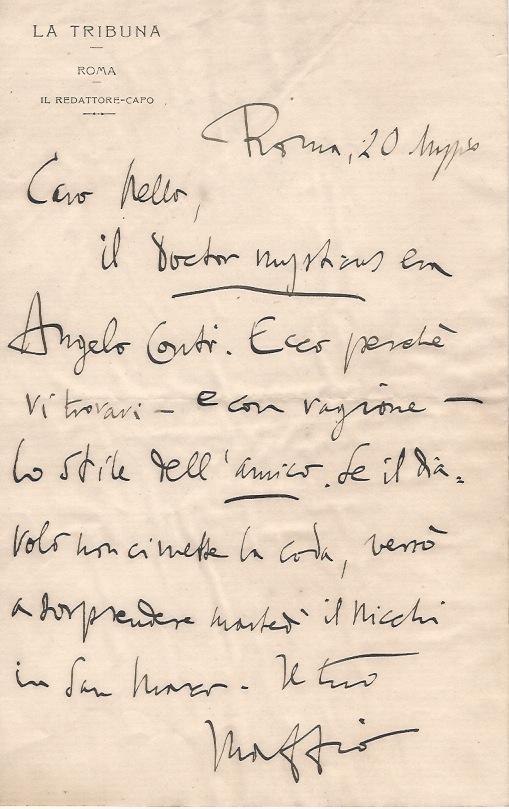 LA TRIBUNA
ROMA
IL REDATTORE-CAPO
Roma, 20 Maggio
Caro Nello,
il Doctor mysticus era
Angelo Conti. Ecco perchè
vi trovavi - e con ragione -
lo stile dell'amico. Se il dia=
volo non ci mette la coda, verrò
a sorprendere martedì il Nicchi
in San Marco. Il tuo
Maffio